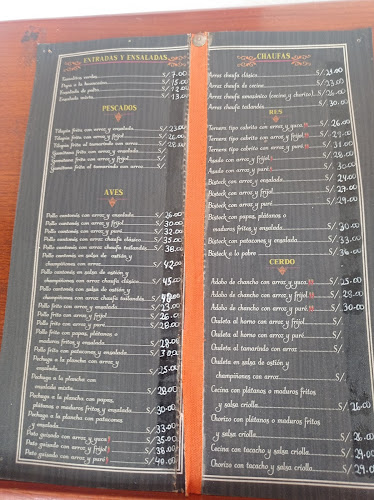 ENTRADAS Y ENSALADAS
S/ 7.00
Papa a la huancaína S/ 15.00
Ensalada de pollo S/ 12.00
Ensalada mixta S/ 13.00
PESCADOS
Tilapia frita con arroz y yuca S/ 23.00
Tilapia frita con arroz y frijol S/ 26.00
Tilapia frita con arroz y puré S/ 28.00
frita con arroz y
frita con arroz y
frita al tamarindo con arroz
AVES
Pollo cantonés con arroz y ensalada S/ 26.00
Pollo cantonés con arroz y frijol S/ 30.00
Pollo cantonés con arroz y puré S/ 32.00
Pollo cantonés con arroz chaufa clásico S/ 35.00
Pollo cantonés con arroz chaufa tailandés S/ 38.00
Pollo cantonés en salsa de ostión y
champiñones con arroz S/ 42.00
Pollo cantonés en salsa de ostión y
champiñones con arroz chaufa clásico S/ 45.00
Pollo cantonés en salsa de ostión y
champiñones con arroz chaufa tailandés S/
Pollo frito con arroz y ensalada S/ 23.00
Pollo frito con arroz y frijol S/ 26.00
Pollo frito con arroz y puré S/ 28.00
Pollo frito con papas, plátanos o
maduros fritos y ensalada S/ 28.00
Pollo frito con patacones y ensalada S/ 30.00
Pechuga a la plancha con arroz
y ensalada S/ 25.00
Pechuga a la plancha con
ensalada mixta S/ 28.00
Pechuga a la plancha con papas,
plátanos o maduros fritos y ensalada S/ 30.00
Pechuga a la plancha con patacones
y ensalada S/ 33.00
Pato guisado con arroz y yuca S/ 35.00
Pato guisado con arroz y frijol S/ 38.00
Pato guisado con arroz y puré S/ 40.00
CHAUFAS
Arroz chaufa clásico S/ 21.00
Arroz chaufa de cecina S/ 23.00
Arroz chaufa amazónico (cecina y chorizo) S/ 26.00
Arroz chaufa tailandés S/ 30.00
RES
Ternera tipo cabrito con arroz y yuca S/ 26.00
Ternera tipo cabrito con arroz y frijol S/ 27.00
Ternera tipo cabrito con arroz y puré S/ 31.00
Asado con arroz y frijol S/ 28.00
Asado con arroz y puré S/ 30.00
Bisteck con arroz y ensalada S/ 24.00
Bisteck con arroz y frijol S/ 27.00
Bisteck con arroz y puré S/ 29.00
Bisteck con papas, plátanos o
maduros fritos y ensalada S/ 30.00
Bisteck con patacones y ensalada S/ 33.00
Bisteck a lo pobre S/ 36.00
CERDO
Adobo de chancho con arroz y yuca S/ 25.00
Adobo de chancho con arroz y frijol S/ 28.00
Adobo de chancho con arroz y puré S/ 30.00
Chuleta al horno con arroz y frijol S/
Chuleta al horno con arroz y puré S/
Chuleta al tamarindo con arroz S/
Chuleta en salsa de ostión y
champiñones con arroz S/
Cecina con plátanos o maduros fritos
y salsa criolla S/ 26.00
Chorizo con plátanos o maduros fritos
y salsa criolla S/ 26.00
Cecina con tacacho y salsa criolla S/ 29.00
Chorizo con tacacho y salsa criolla S/ 29.00